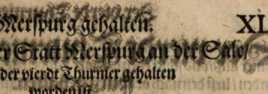 Merspurg gehalten. XL
er Statt Merspurg an der Sale/
der vierdt Thurnier gehalten
worden ist